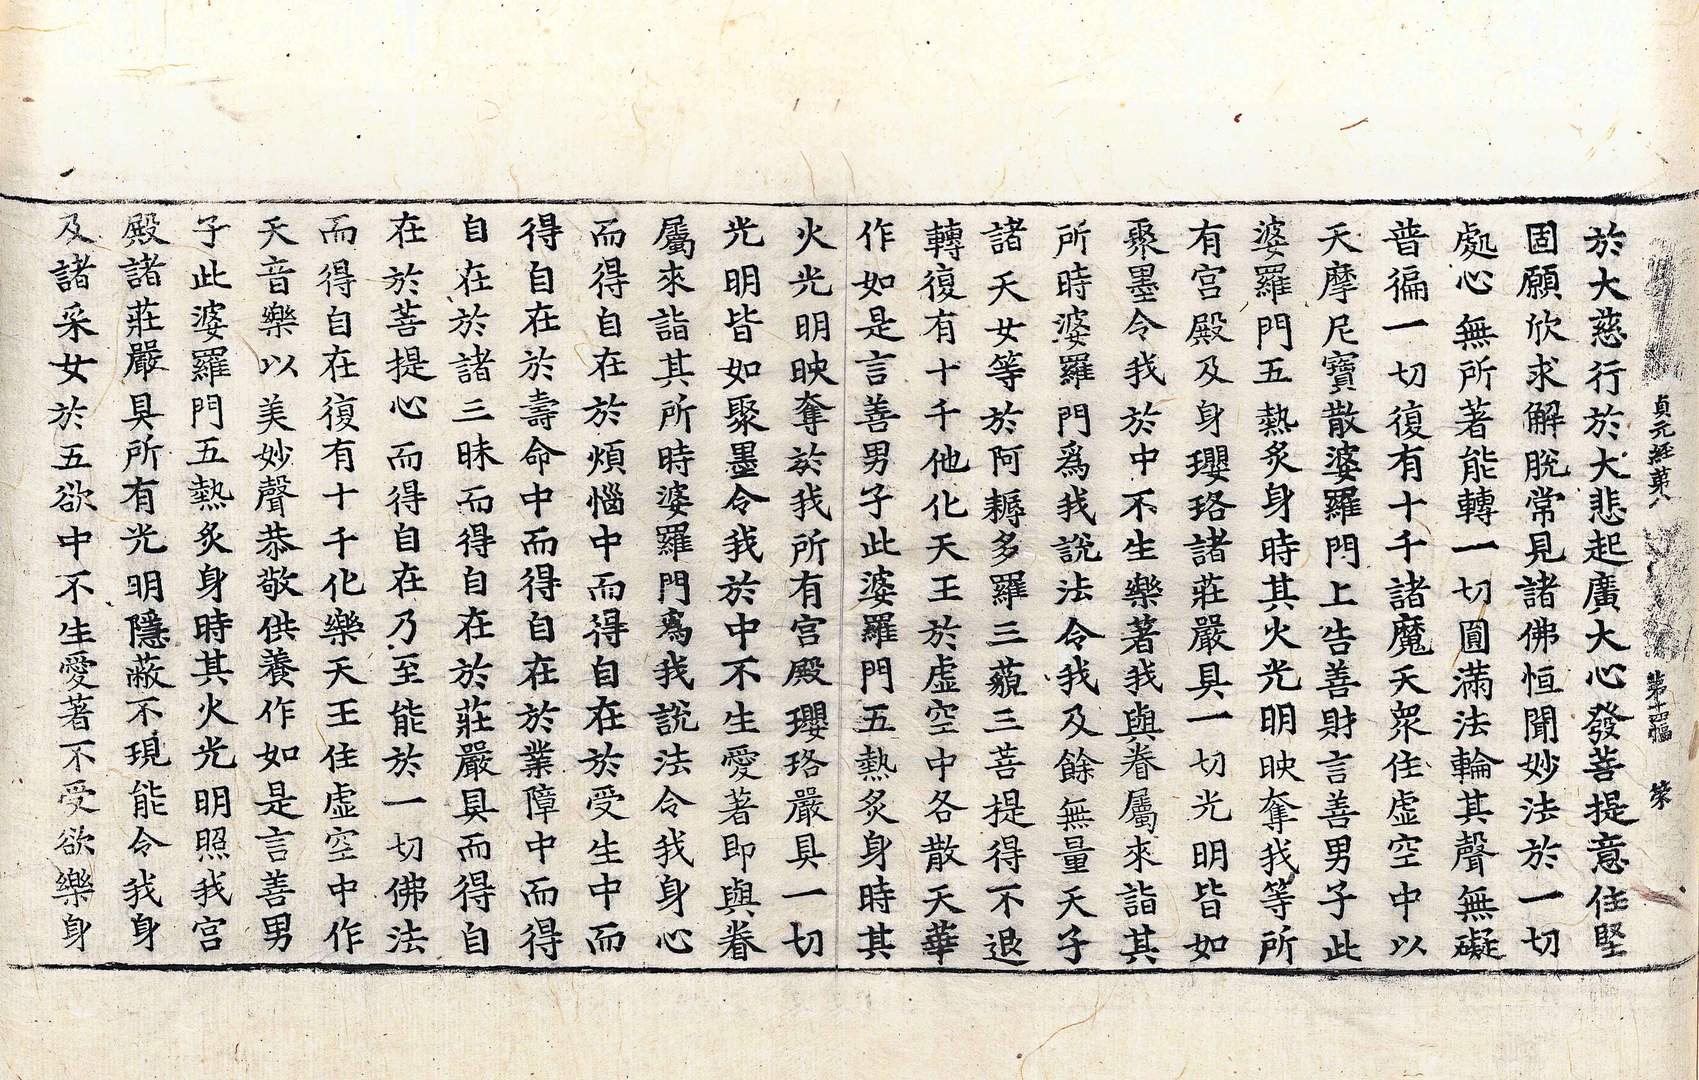 貞元経第八 第十四幅 榮
於大慈行於大悲起廣大心發菩提意住堅
固願欣求解脫常見諸佛恒聞妙法於一切
處心無所著能轉一切圓滿法輪其聲無礙
普徧一切復有十千諸魔天眾住虛空中以
天摩尼寶散婆羅門上告善財言善男子此
婆羅門五熱炙身時其火光明映奪我等所
有宮殿及身瓔珞諸莊嚴具一切光明皆如
聚墨令我於中不生樂著我與眷屬來詣其
所時婆羅門為我說法令我及餘無量天子
諸天女等於阿耨多羅三藐三菩提得不退
轉復有十千他化天王於虛空中各散天華
作如是言善男子此婆羅門五熱炙身時其
火光明映奪於我所有宮殿瓔珞嚴具一切
光明皆如聚墨令我於中不生愛著即與眷
屬來詣其所時婆羅門為我說法令我身心
而得自在於煩惱中而得自在於受生中而
得自在於壽命中而得自在於業障中而得
自在於諸三昧而得自在於莊嚴具而得自
在於菩提心而得自在乃至能於一切佛法
而得自在復有十千化樂天王住虛空中作
天音樂以美妙聲恭敬供養作如是言善男
子此婆羅門五熱炙身時其火光明照我宮
殿諸莊嚴具所有光明隱蔽不現能令我身
及諸采女於五欲中不生愛著不受欲樂身